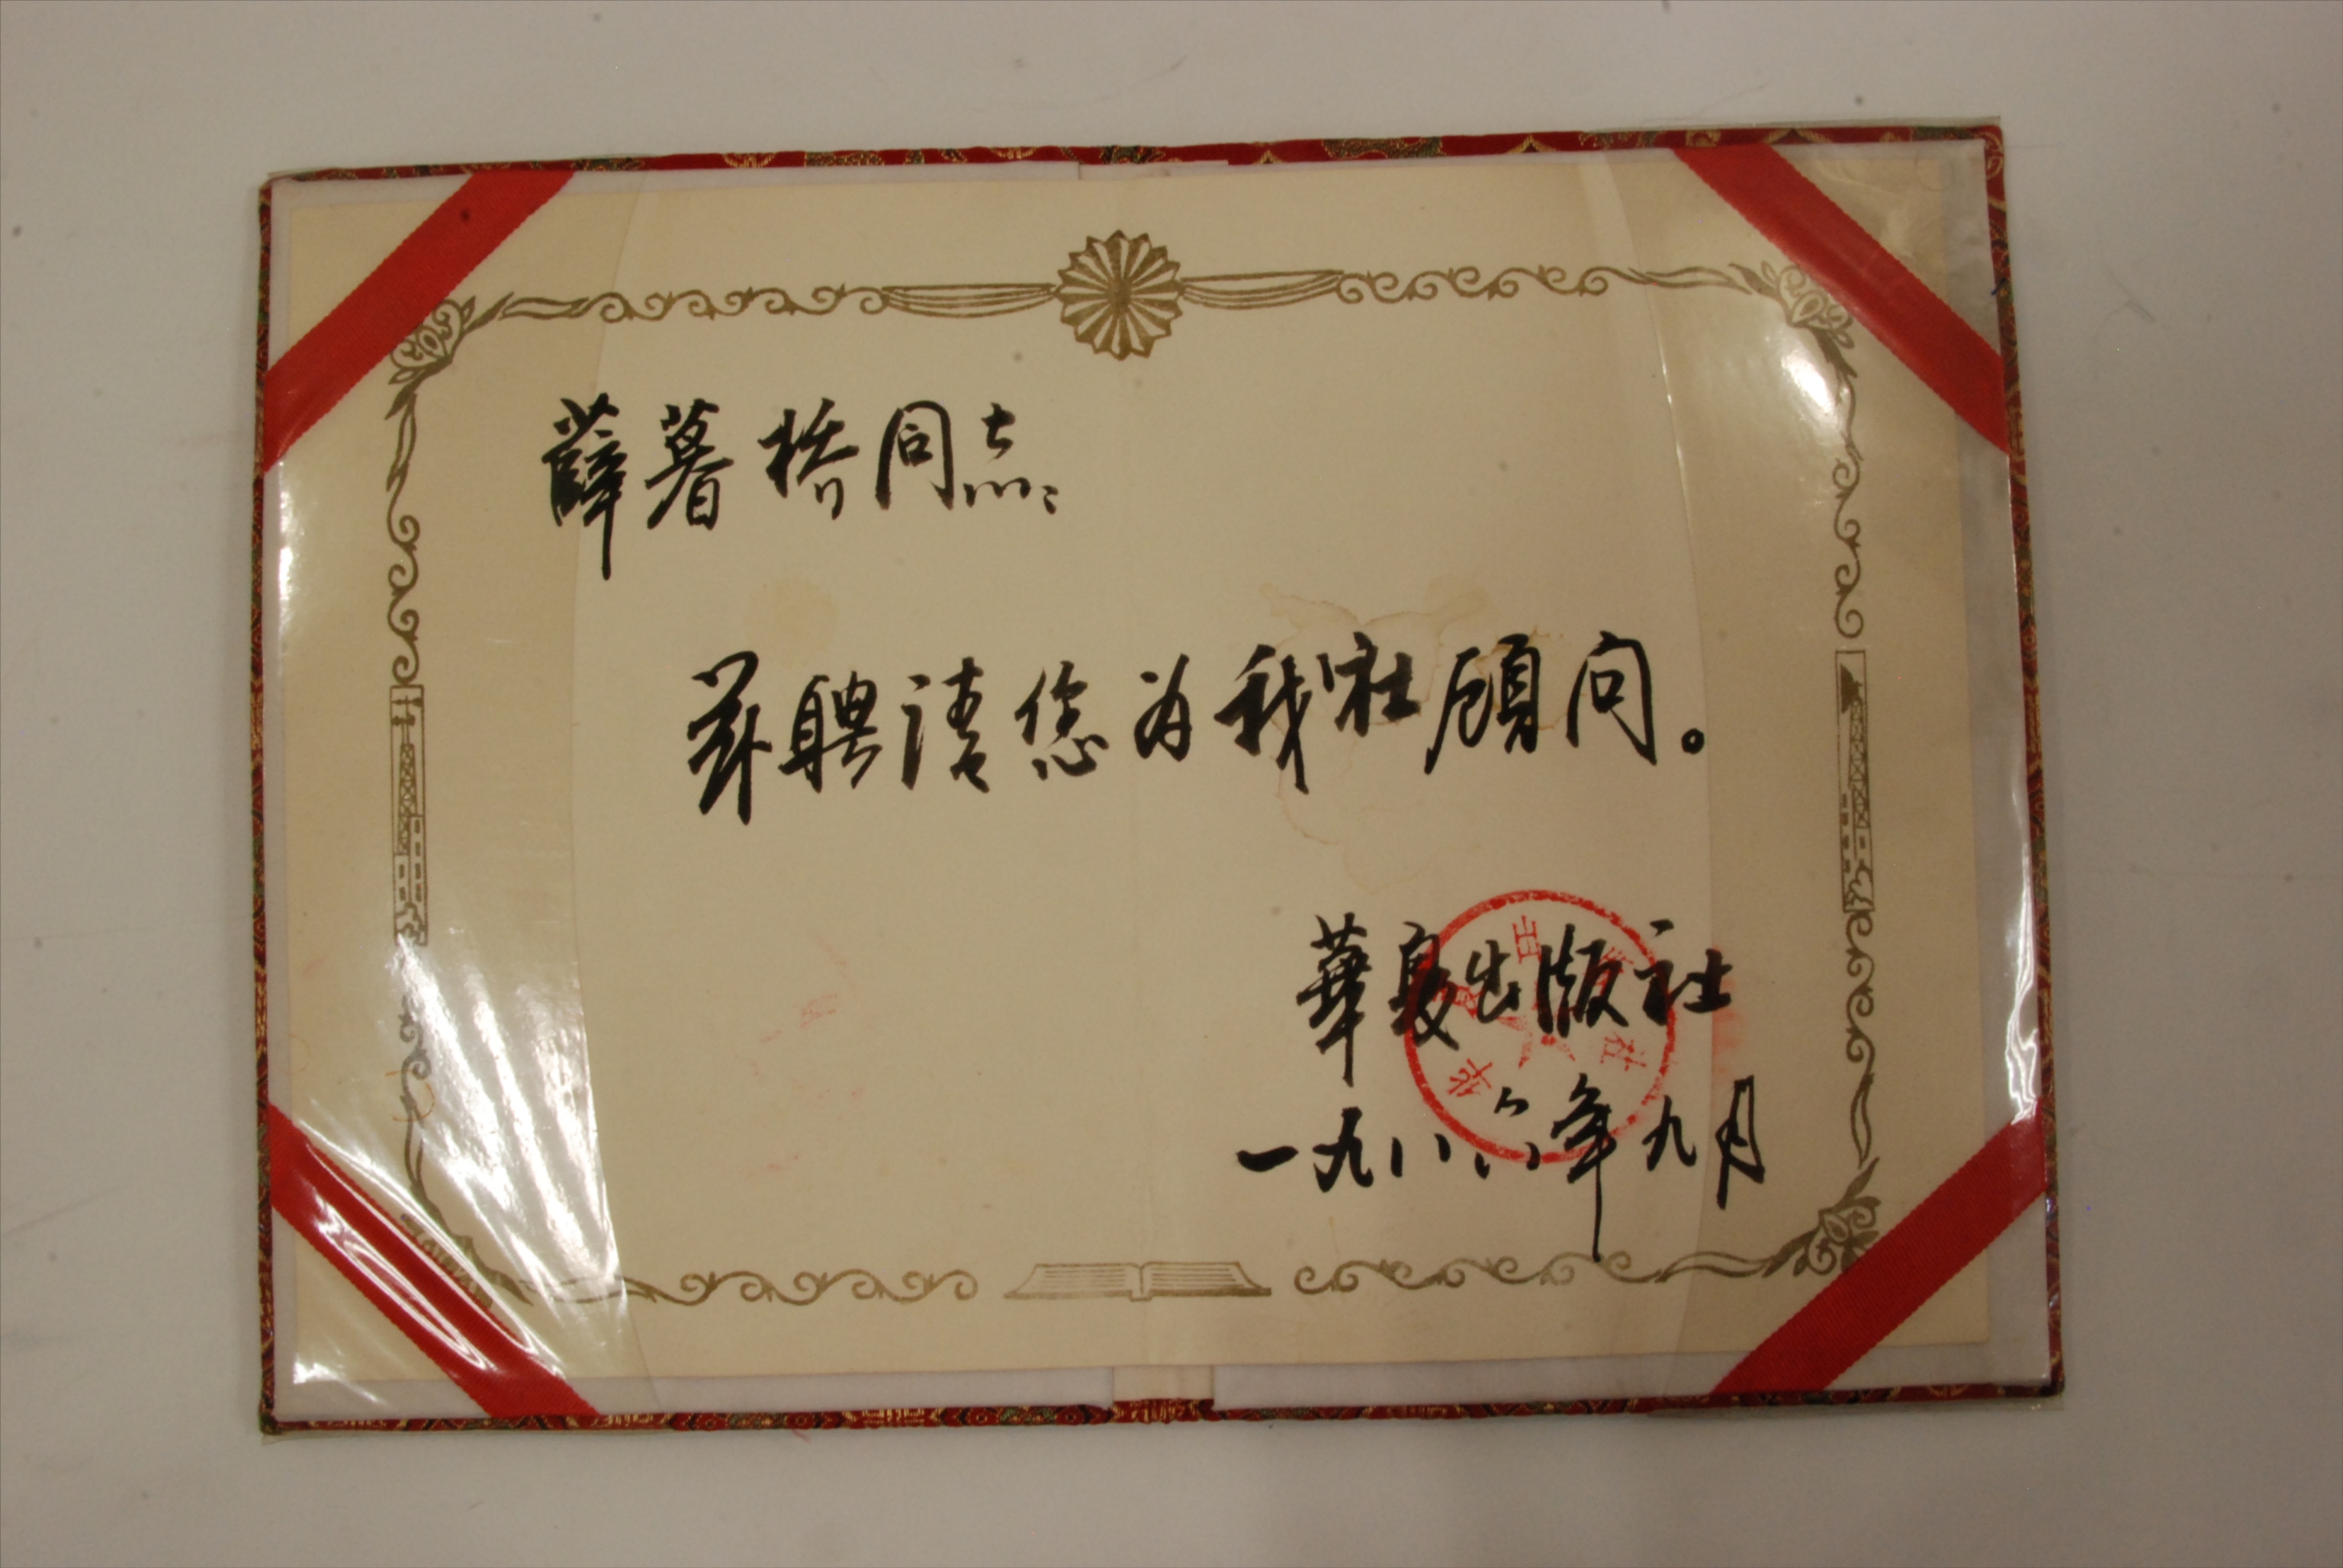 薛暮桥同志:
兹聘请您为我社顾问。
華夏出版社
一九八六年九月
出 社